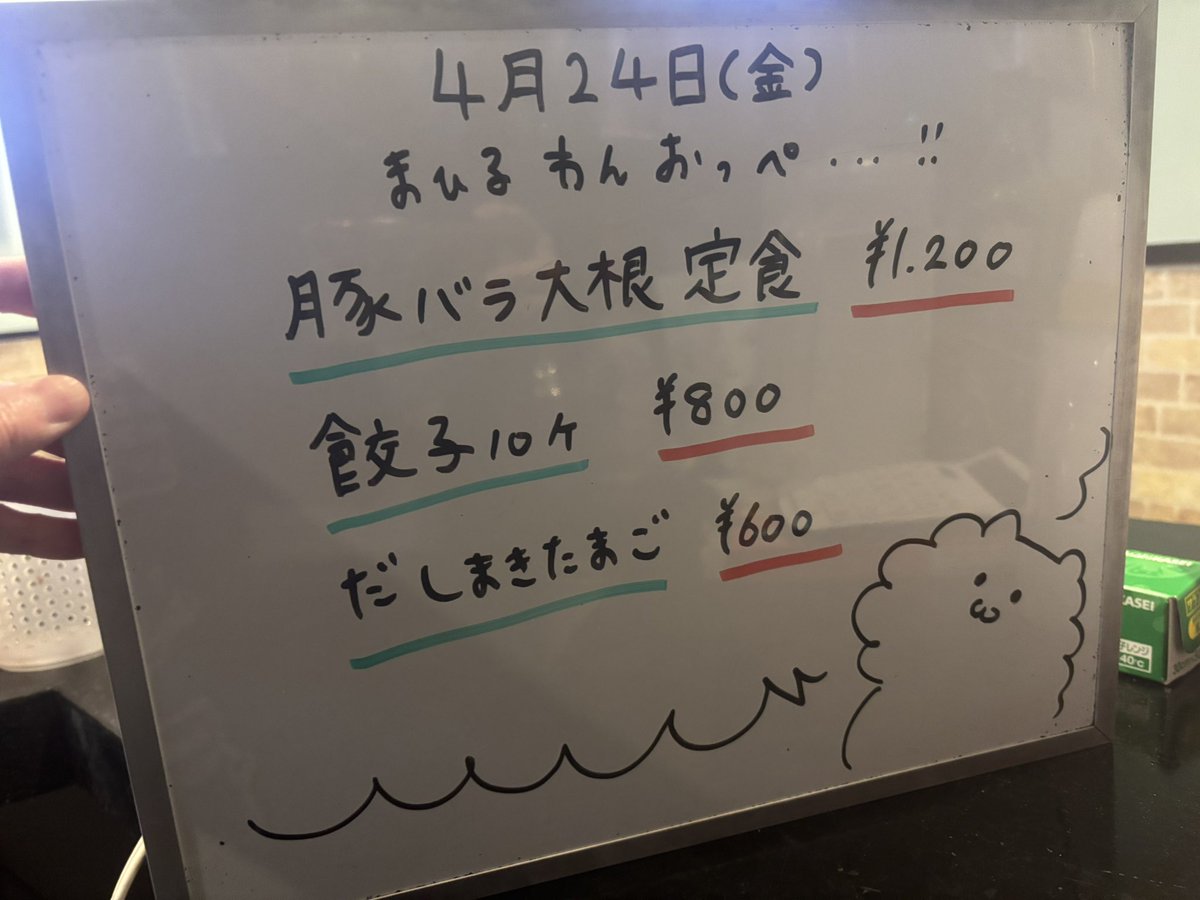 4月24日(金)
まひる わん おっぺ ... !!
豚バラ大根 定食 ¥1.200
餃子10ケ ¥800
だしまきたまご ¥600
KASEI
子レンジ
40℃